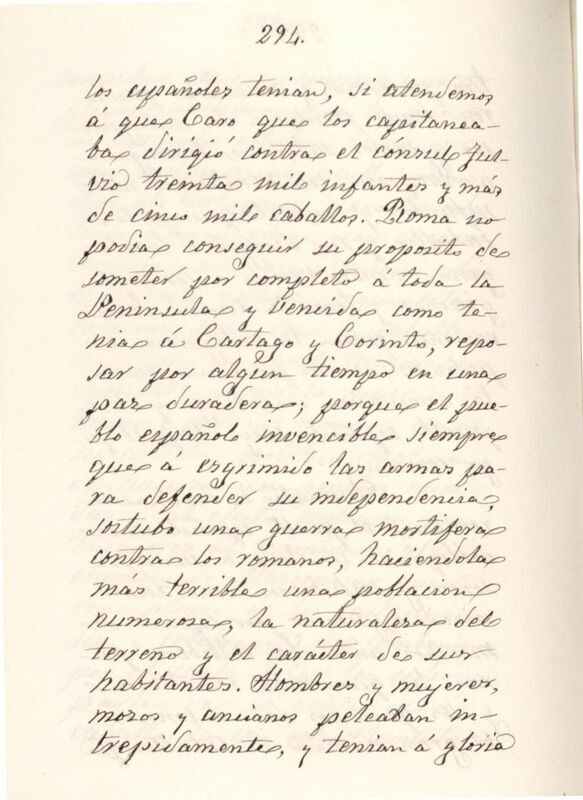 294.
los españoles tenian, si atendemos
á que Caro que los capitanea-
ba dirigió contra el cónsul Ful-
vio treinta mil infantes y más
de cinco mil caballos. Roma no
podia conseguir su proposito de
someter por completo á toda la
Peninsula y vencida como te-
nia á Cartago y Corinto, repo-
sar por algún tiempo en una
paz duradera; porque el pue-
blo español invencible siempre
que á esgrimido las armas pa-
ra defender su independencia,
sostubo una guerra mortifera
contra los romanos, haciendola
más terrible una poblacion
numerosa, la naturaleza del
terreno y el carácter de sus
habitantes. Hombres y mujeres,
mozos y ancianos peleaban in-
trepidamente, y tenian á gloria